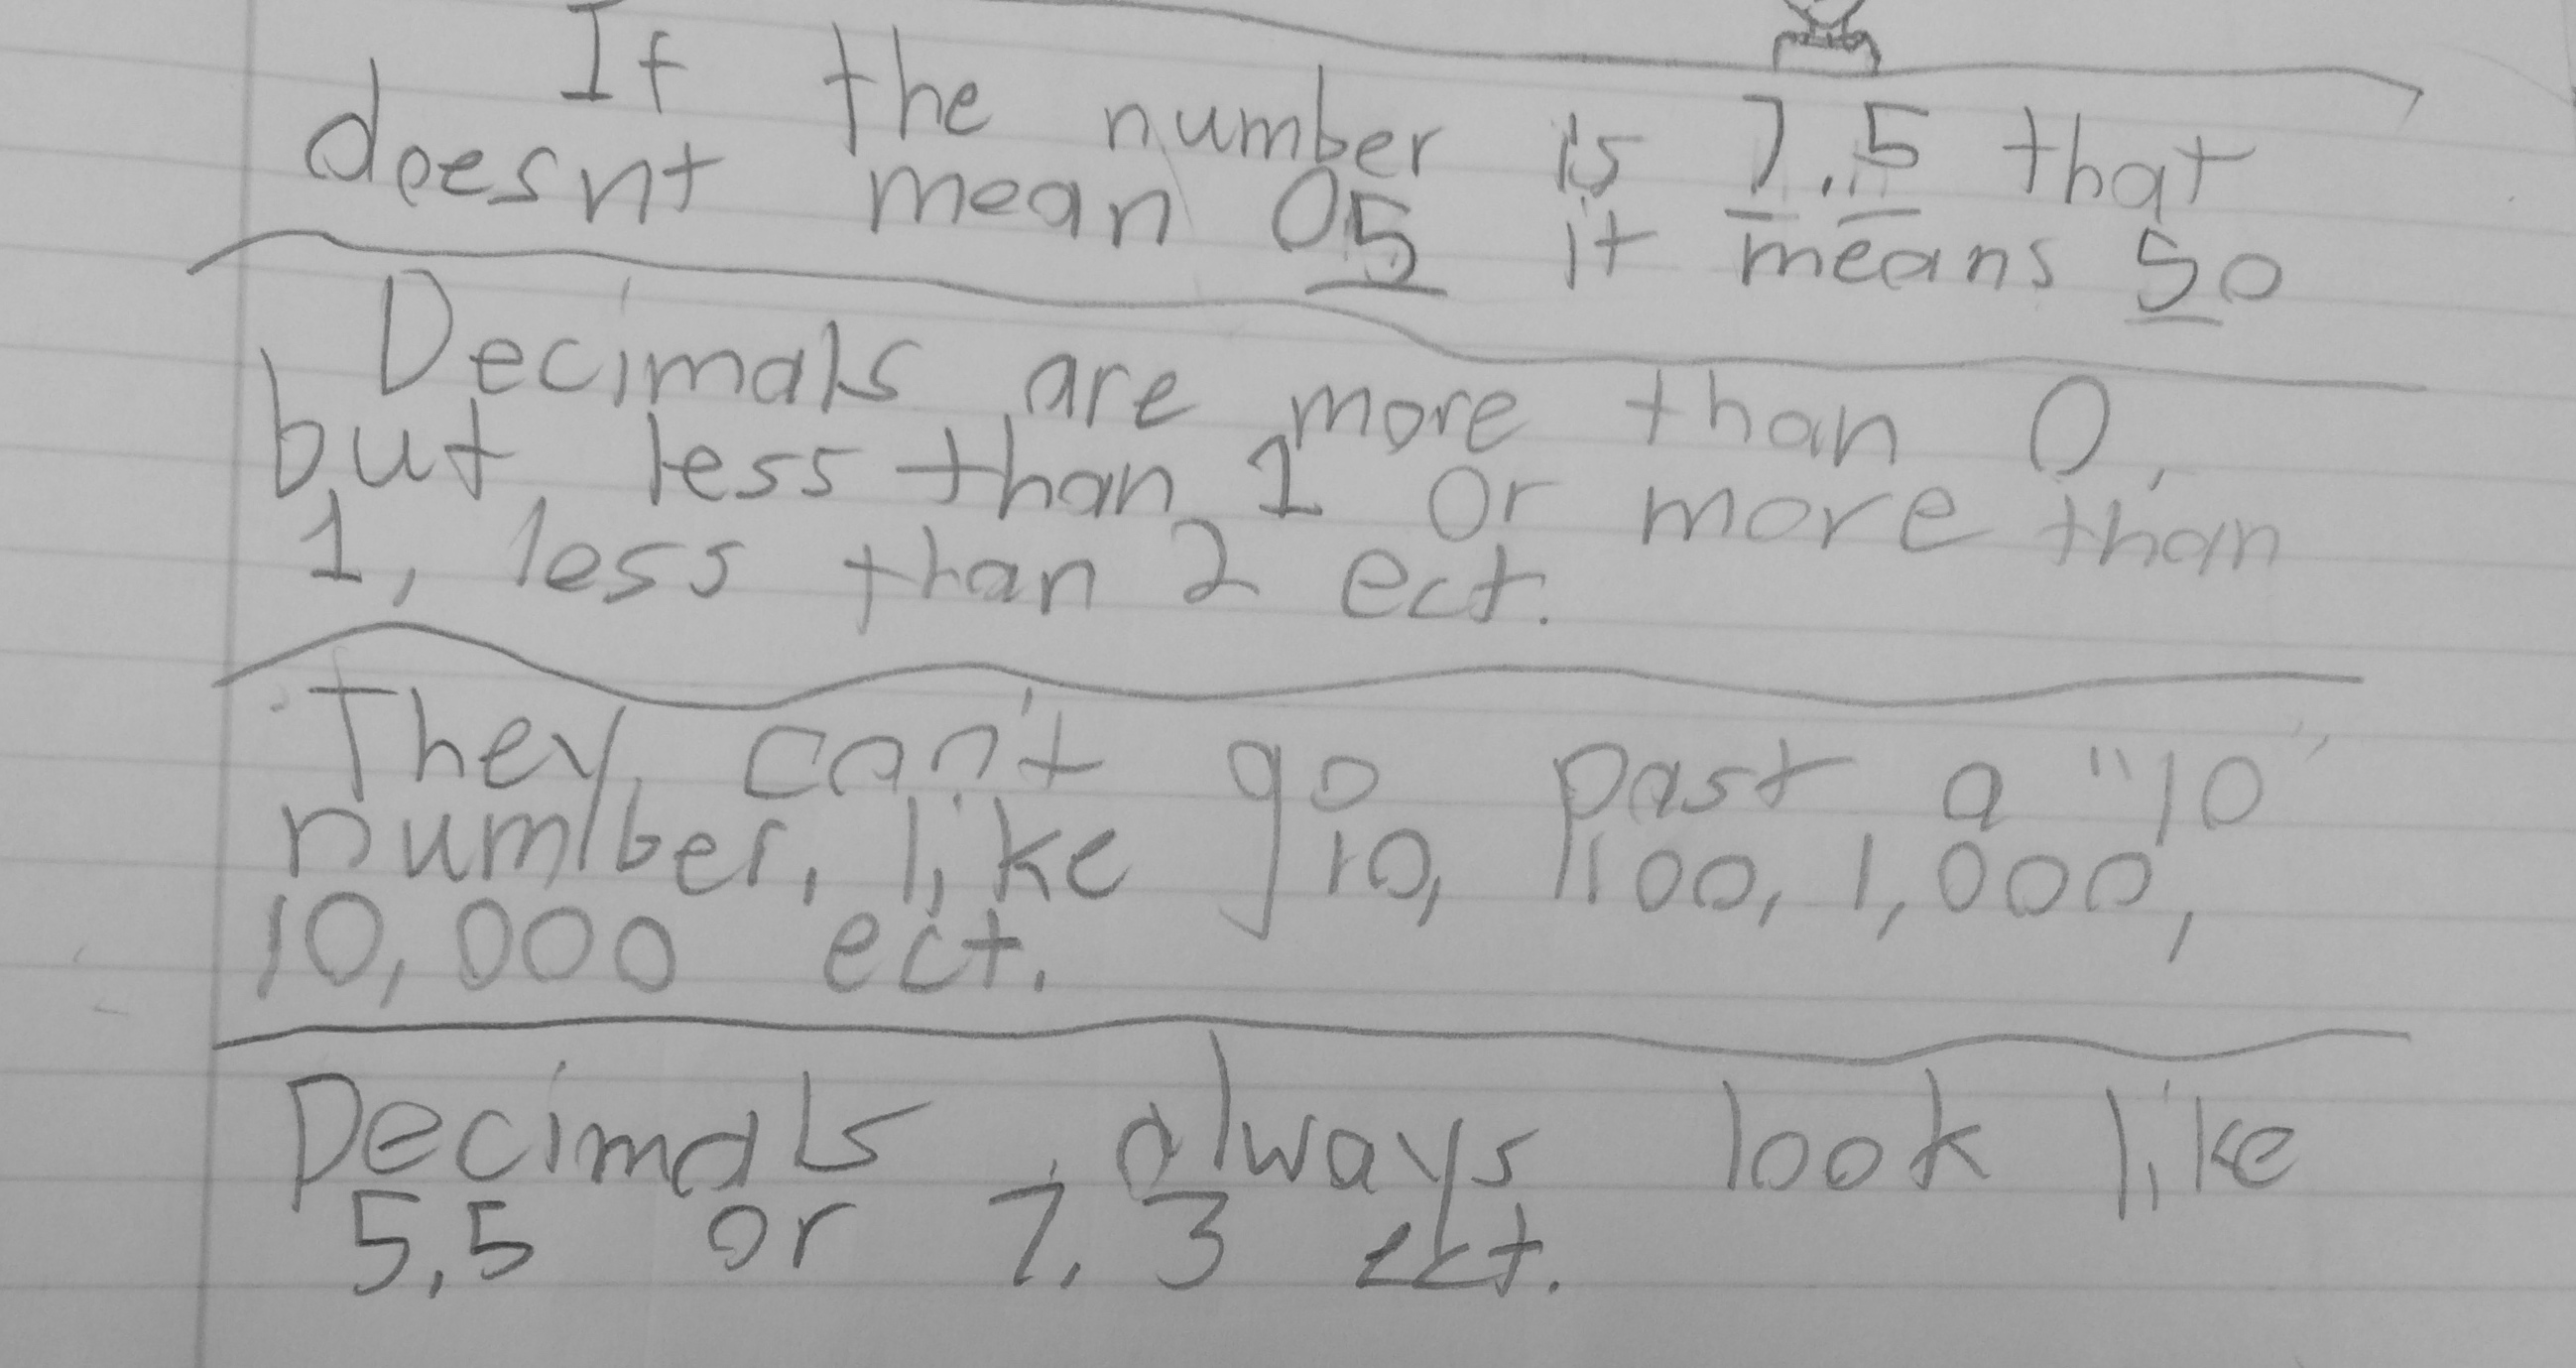 If the number is 7.5 that
doesnt mean 05 it means 50
Decimals are more than 0,
but less than 1 or more than
1, less than 2 ect.
They can't go past a "10"
number, like 10, 100, 1,000,
10,000 ect.
Decimals always look like
5.5 or 7.3 ect.